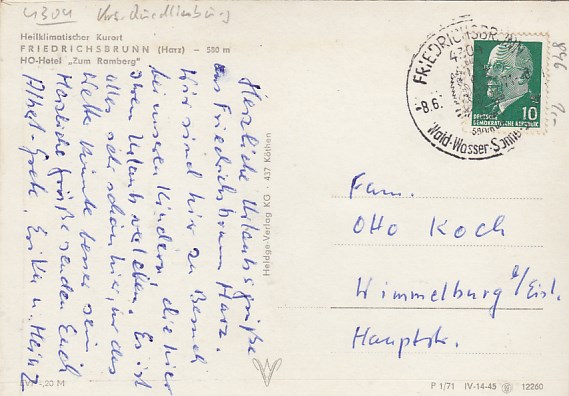 4304 Krs. Quedlinburg
Heilklimatischer Kurort
FRIEDRICHSBRUNN (Harz) — 580 m
HO-Hotel „Zum Ramberg"
FRIEDRICHSBRUNN
4304
-8.6.
Wald-Wasser-Sonne
10
DEUTSCHE
DEMOKRATISCHE REPUBLIK
846
Herzliche Urlaubsgrüße
aus Friedrichsbrunn Harz.
Wir sind hier zu Besuch
bei unseren Kindern die hier
ihren Urlaub verleben. Es ist
alles sehr schön hier, nur das
Wetter könnte besser sein
Herzliche Grüße senden Euch
Grete, Erika u. Heinz
Heldge-Verlag KG · 437 Köthen
Fam.
Otto Koch
Wimmelburg b/Eisl.
Hauptstr.
EVP -,20 M
P 1/71 IV-14-45 12260